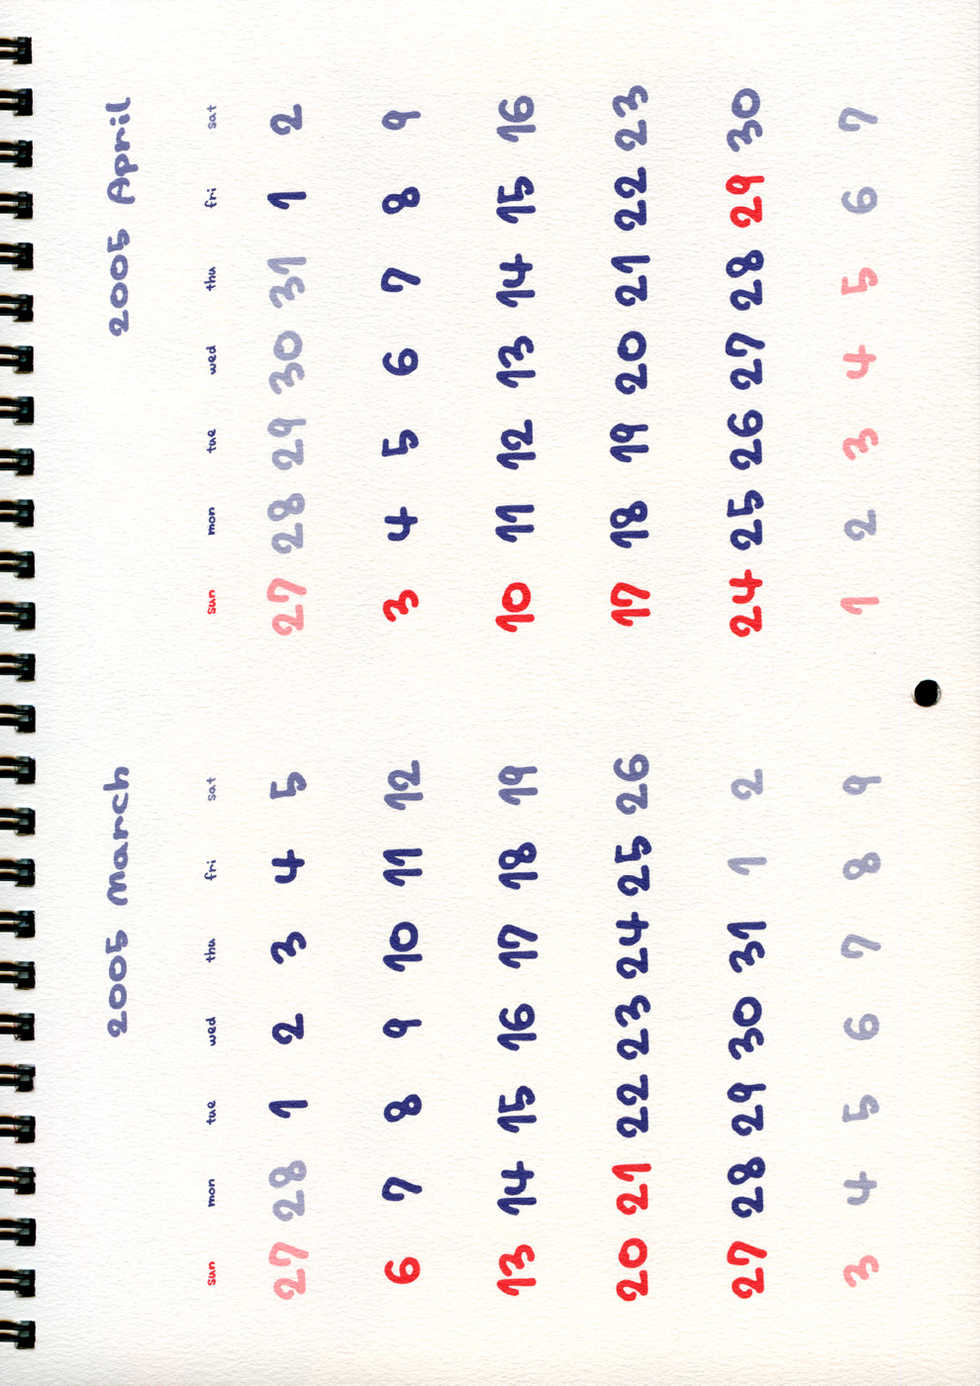 2005 March
sun mon tue wed thu fri sat
27 28 1 2 3 4 5
6 7 8 9 10 11 12
13 14 15 16 17 18 19
20 21 22 23 24 25 26
27 28 29 30 31 1 2
3 4 5 6 7 8 9
2005 April
sun mon tue wed thu fri sat
27 28 29 30 31 1 2
3 4 5 6 7 8 9
10 11 12 13 14 15 16
17 18 19 20 21 22 23
24 25 26 27 28 29 30
1 2 3 4 5 6 7